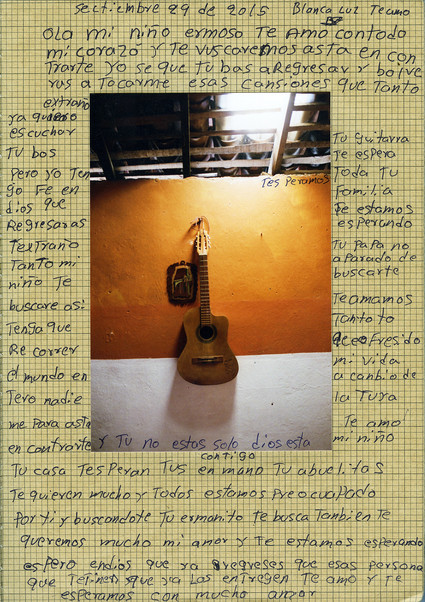 sectiembre 29 de 2015 Blanca Luz Te
ola mi niño ermoso Te Amo con todo
mi corazo y Te vuscaremos asta en con
Trarte yo se que Tu bas a Regresar y bolve
ras a Tocarme esas cansiones que Tanto
extraño
ya quiero
escuchar
Tu bos
pero yo Ten
go Fe en
dios que
Regresaras
TexTraño
TanTo mi
niño Te
buscare asi
Tenga que
Recorrer
el mundo en
Tero nadie
me Para asta
en contrarte y Tu no estas solo dios esta
contigo
Tes Peramos
Tu guitarra
Te espera
Toda Tu
Familia
Te estamos
esperando
Tu papa no
a parado de
buscarte
Te amamos
Tanto to
Ofresido
mi vida
a canbio de
la Tuya
Te amo
mi niño
Tu casa TesPeran Tus en mano Tu abuelitos
Te quieren mucho y Todos estamos preocupado
por Ti y buscandote Tu ermanito Te busca Tanbien Te
queremos mucho mi amor y Te estamos esperando
espero en dios que ya regreses que esas persona
que Tetinen que ya Los entregen Te amo y Te
esperamos con mucho amor